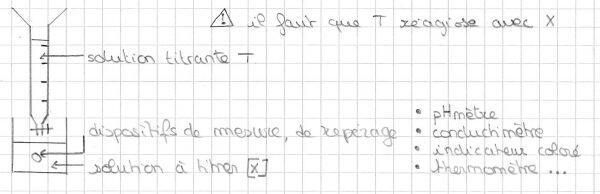 ⚠ il faut que T réagisse avec X
solution titrante T
dispositifs de mesure, de repérage
solution à titrer [X]
• pHmètre
• conductimètre
• indicateur coloré
• thermomètre ...